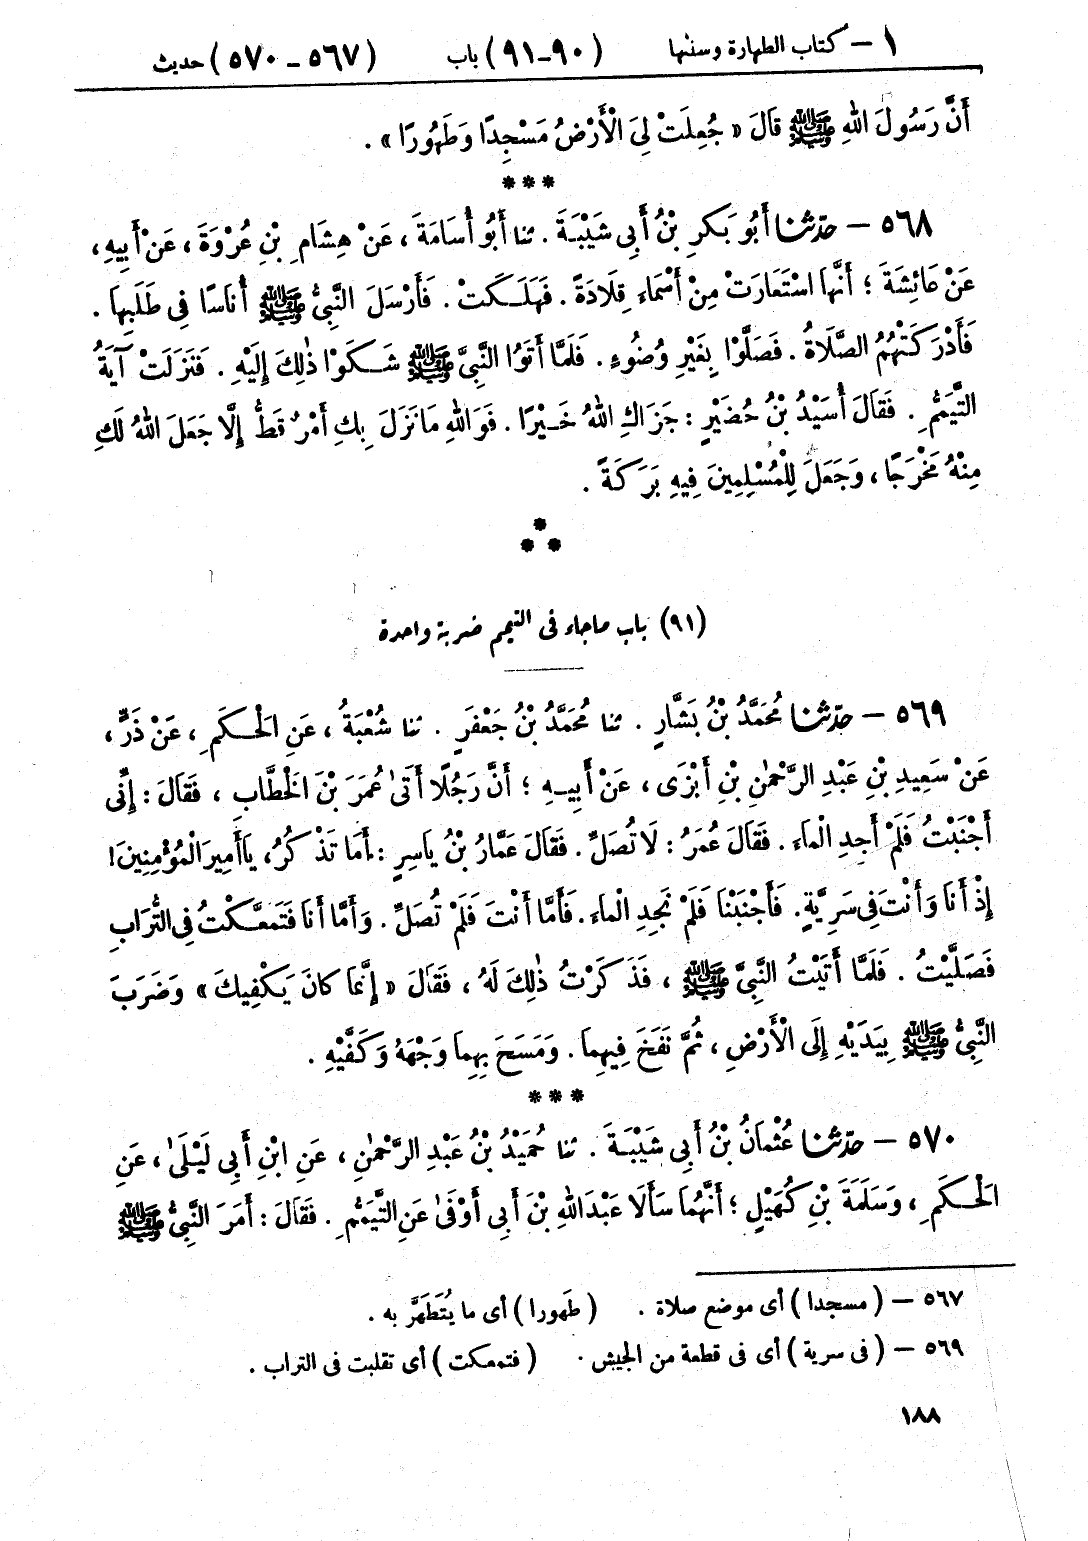 ١ – كتاب الطهارة وسننها (٩٠-٩١) باب (٥٦٧ - ٥٧٠) حديث
أَنَّ رَسُولَ اللهِ ﷺ قَالَ « جُعِلَتْ لِيَ الْأَرْضُ مَسْجِدًا وَطَهُورًا » .
***
٥٦٨ – حدّثنا أَبُو بَكرِ بْنُ أَبِي شَيْبَةَ . ثنا أَبُو أُسَامَةَ ، عَنْ هِشَامِ بْنِ عُرْوَةَ ، عَنْ أَبِيهِ ،
عَنْ عَائِشَةَ ؛ أَنَّهَا اسْتَعَارَتْ مِنْ أَسْمَاءَ قِلَادَةً . فَهَلَكَتْ . فَأَرْسَلَ النَّبِيُّ ﷺ أُنَاسًا فِي طَلَبِهَا .
فَأَدْرَكَتْهُمُ الصَّلَاةُ . فَصَلَّوْا بِغَيْرِ وُضُوءٍ . فَلَمَّا أَتَوُا النَّبِيَّ ﷺ شَكَوْا ذٰلِكَ إِلَيْهِ . فَنَزَلَتْ آيَةُ
التَّيَمُّمِ . فَقَالَ أُسَيْدُ بْنُ حُضَيْرٍ : جَزَاكِ اللهُ خَيْرًا . فَوَاللهِ مَا نَزَلَ بِكِ أَمْرٌ قَطُّ إِلَّا جَعَلَ اللهُ لَكِ
مِنْهُ مَخْرَجًا ، وَجَعَلَ لِلْمُسْلِمِينَ فِيهِ بَرَكَةً .
*
* *
(٩١) باب ماجاء فى التيمم ضربة واحدة
٥٦٩ – حدّثنا مُحَمَّدُ بْنُ بَشَّارٍ . ثنا مُحَمَّدُ بْنُ جَعْفَرٍ . ثنا شُعْبَةُ ، عَنِ الْحَكَمِ ، عَنْ ذَرٍّ ،
عَنْ سَعِيدِ بْنِ عَبْدِ الرَّحْمٰنِ بْنِ أَبْزَى ، عَنْ أَبِيهِ ؛ أَنَّ رَجُلًا أَتَى عُمَرَ بْنَ الْخَطَّابِ ، فَقَالَ : إِنِّى
أَجْنَبْتُ فَلَمْ أَجِدِ الْمَاءَ . فَقَالَ عُمَرُ : لَا تُصَلِّ . فَقَالَ عَمَّارُ بْنُ يَاسِرٍ : أَمَا تَذْكُرُ، يَا أَمِيرَ الْمُؤْمِنِينَ!
إِذْ أَنَا وَأَنْتَ فِى سَرِيَّةٍ. فَأَجْنَبْنَا فَلَمْ نَجِدِ الْمَاءَ . فَأَمَّا أَنْتَ فَلَمْ تُصَلِّ . وَأَمَّا أَنَا فَتَمَعَّكْتُ فِى التُّرَابِ
فَصَلَّيْتُ . فَلَمَّا أَتَيْتُ النَّبِيَّ ﷺ ، فَذَكَرْتُ ذٰلِكَ لَهُ ، فَقَالَ « إِنَّمَا كَانَ يَكْفِيكَ » وَضَرَبَ
النَّبِيُّ ﷺ بِيَدَيْهِ إِلَى الْأَرْضِ ، ثُمَّ نَفَخَ فِيهِمَا . وَمَسَحَ بِهِمَا وَجْهَهُ وَكَفَّيْهِ .
***
٥٧٠ – حدّثنا عُثْمَانُ بْنُ أَبِى شَيْبَةَ . ثنا حُمَيْدُ بْنُ عَبْدِ الرَّحْمٰنِ ، عَنِ ابْنِ أَبِى لَيْلَىٰ ، عَنِ
الْحَكَمِ ، وَسَلَمَةَ بْنِ كُهَيْلٍ ؛ أَنَّهُمَا سَأَلَا عَبْدَ اللهِ بْنَ أَبِى أَوْفَى عَنِ التَّيَمُّمِ . فَقَالَ : أَمَرَ النَّبِيُّ ﷺ
٥٦٧ – ( مسجدا ) أى موضع صلاة . ( طَهورا ) أى ما يُتَطَهَّر به .
٥٦٩ – ( فى سرية ) أى فى قطعة من الجيش . ( فتمعكت ) أى تقلبت فى التراب .
١٨٨